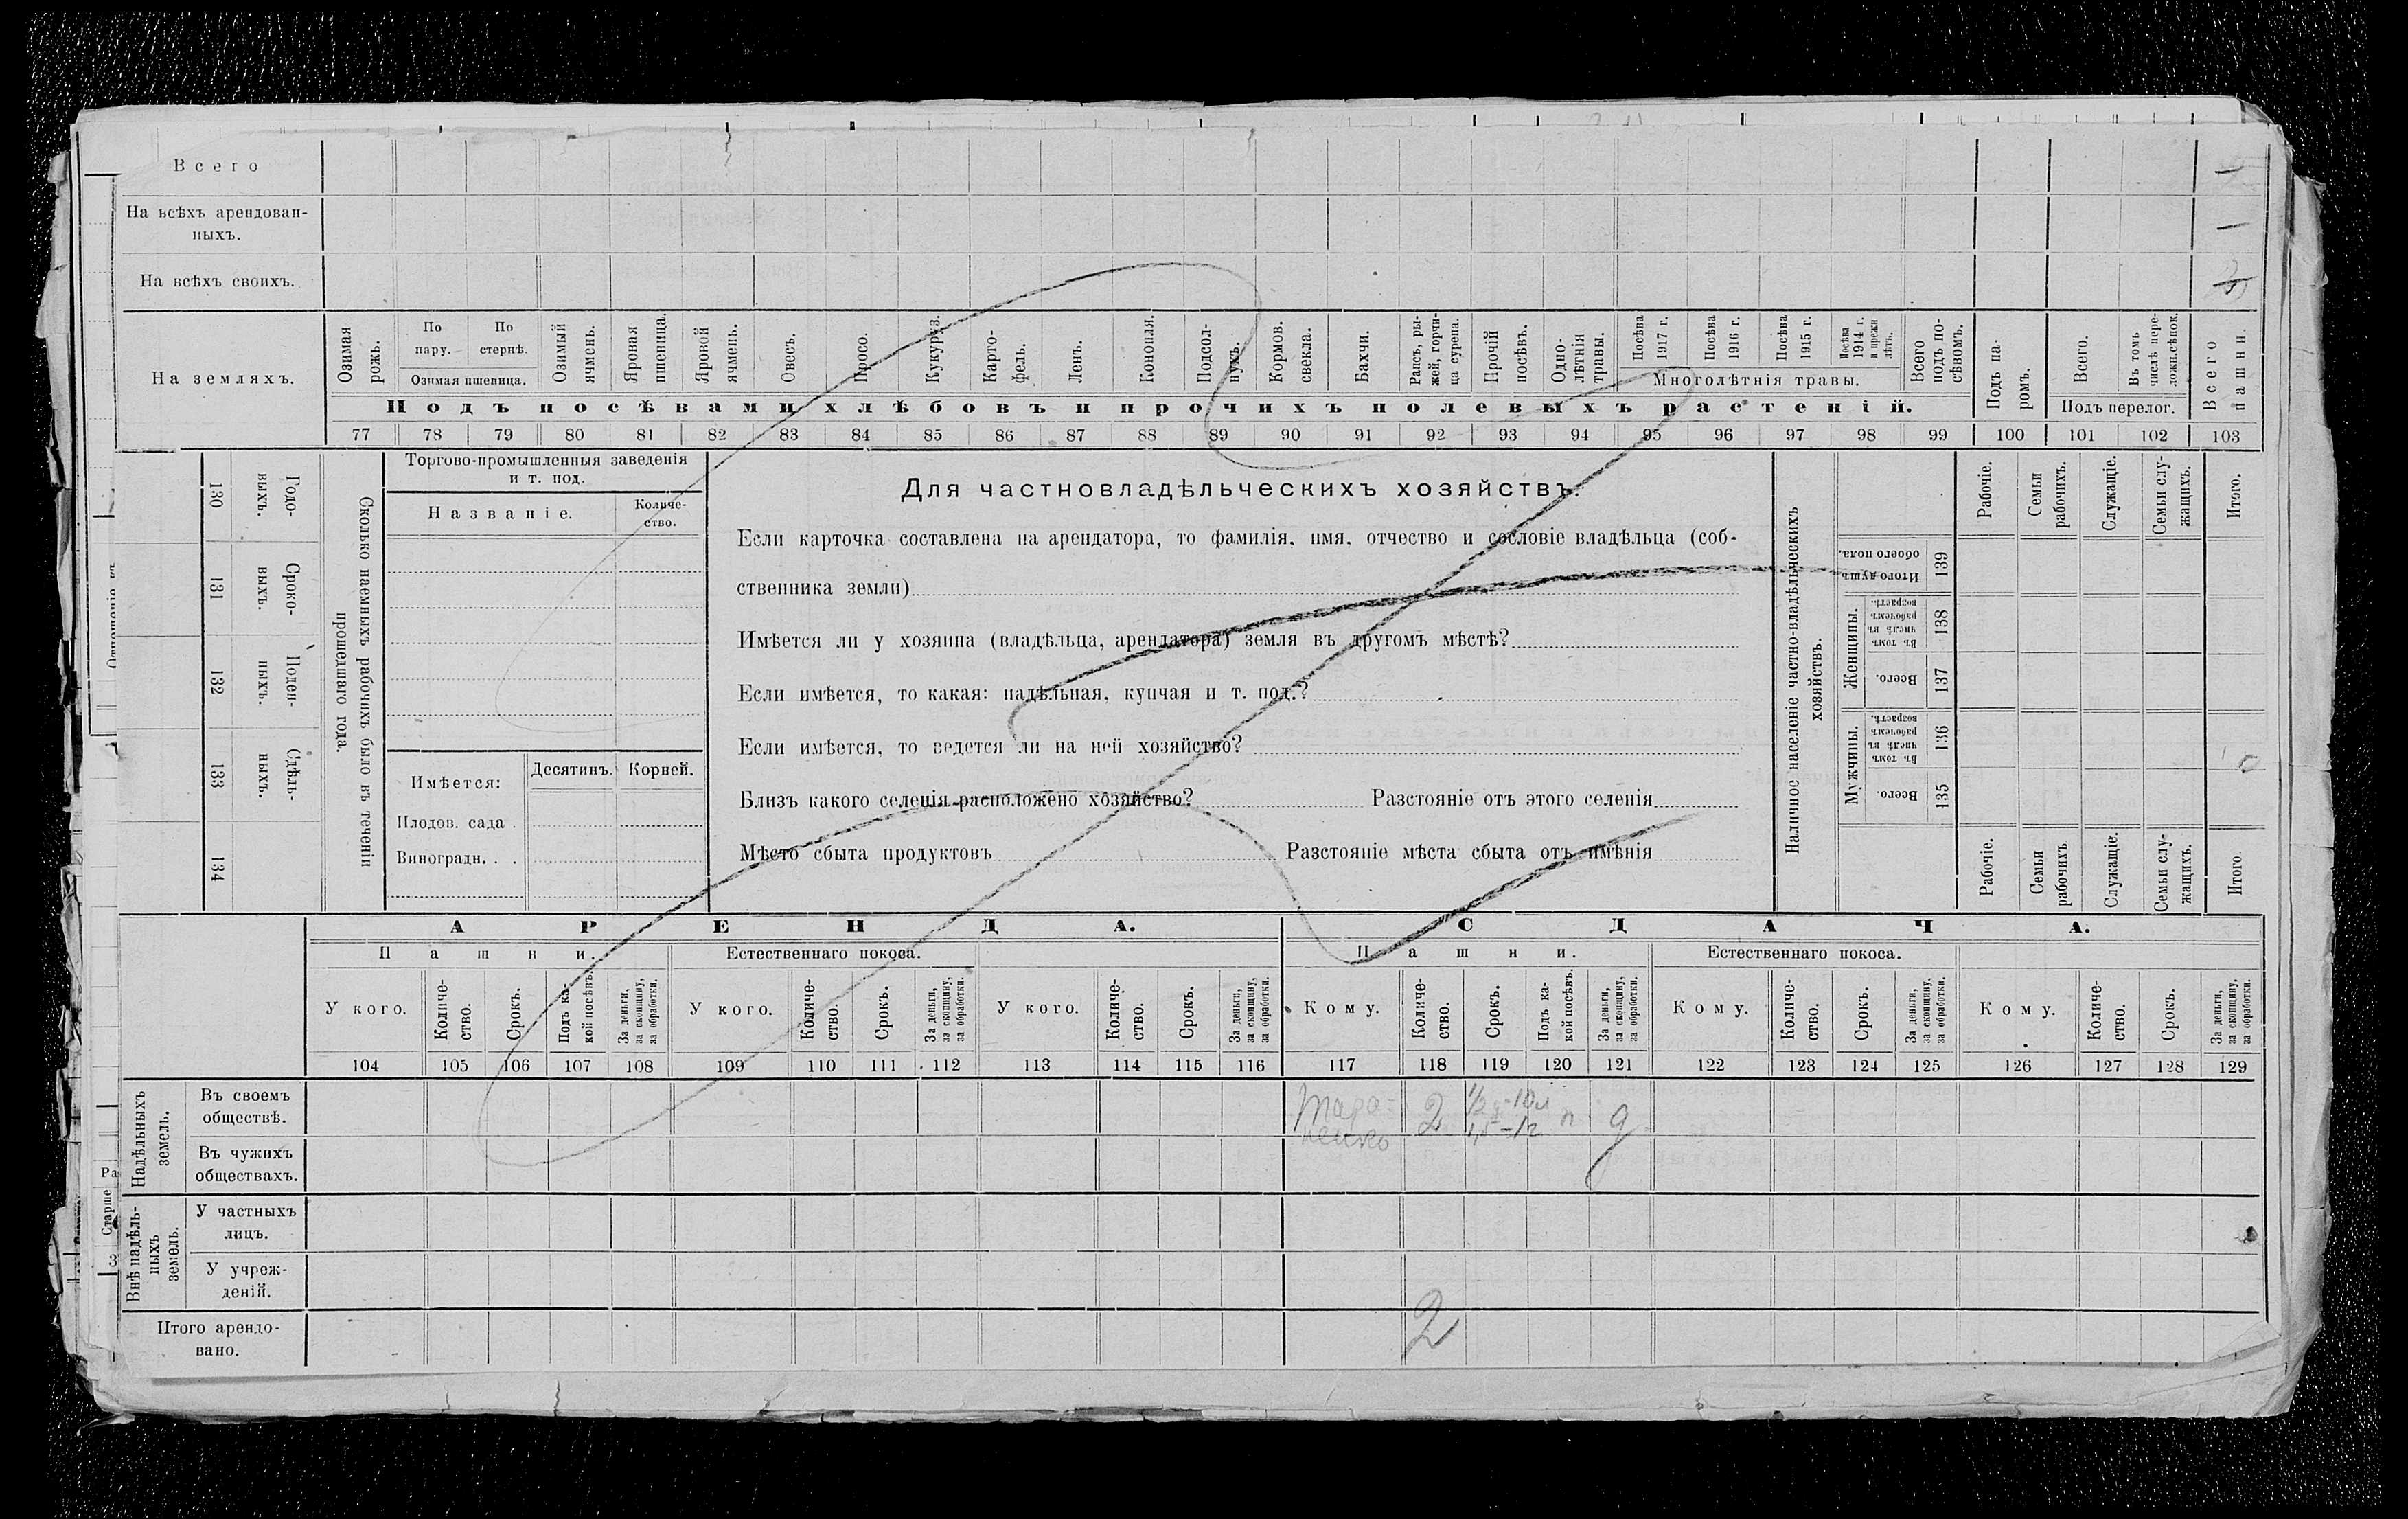 Всего
На всѣхъ арендован-
ныхъ.
На всѣхъ своихъ.
На земляхъ.
Озимая рожь.
По пару.
По стернѣ.
Озимая пшеница.
Озимый ячмень.
Яровая пшеница.
Яровой ячмень.
Овесъ.
Просо.
Кукуруз.
Карто-
фель.
Ленъ.
Конопля.
Подсол-
нухъ.
Кормов. свекла.
Бахчи.
Рапсъ, ры-
жей, горчи-
ца сурепа.
Прочій посѣвъ.
Одно-
лѣтнія
травы.
Посѣва 1917 г.
Посѣва 1916 г.
Посѣва 1915 г.
Посѣва 1914 г. и прежн лѣтъ.
Многолѣтнія травы.
Всего подъ по-
сѣвомъ.
Подъ па-
ромъ.
Всего.
Въ томъ числѣ пере-
ложн.сѣнок.
Подъ перелог.
Всего пашни.
Подъ посѣвами хлѣбовъ и прочихъ полевыхъ растеній.
77 78 79 80 81 82 83 84 85 86 87 88 89 90 91 92 93 94 95 96 97 98 99 100 101 102 103
Годо-
выхъ.
130
Сроко-
выхъ.
131
Поден-
ныхъ.
132
Сдѣль-
ныхъ.
133
134
Сколько наемныхъ рабочихъ было въ теченіи
прошедшаго года.
Торгово-промышленныя заведенія
и т. под.
Названіе.
Количе-
ство.
Имѣется:
Десятинъ.
Корней.
Плодов. сада .
Виноградн. . .
Для частновладѣльческихъ хозяйствъ.
Если карточка составлена на арендатора, то фамилія, имя, отчество и сословіе владѣльца (соб-
ственника земли)
Имѣется ли у хозяина (владѣльца, арендатора) земля въ другомъ мѣстѣ?
Если имѣется, то какая: надѣльная, купчая и т. под.?
Если имѣется, то ведется ли на ней хозяйство?
Близъ какого селенія расположено хозяйство? Разстояніе отъ этого селенія
Мѣсто сбыта продуктовъ Разстояніе мѣста сбыта отъ имѣнія
Наличное населеніе частно-владѣльческихъ
хозяйствъ.
Рабочіе.
Семьи рабочихъ.
Служащіе.
Семьи слу-
жащихъ.
Итого.
Итого душъ обоего пола.
139
Женщины.
Въ томъ числѣ въ рабочемъ возрастѣ.
138
Всего.
137
Мужчины.
Въ томъ числѣ въ рабочемъ возрастѣ.
136
Всего.
135
Рабочіе.
Семьи рабочихъ
Служащіе.
Семьи слу-
жащихъ.
Итого
АРЕНДА. СДАЧА.
Пашни. Естественнаго покоса. Пашни. Естественнаго покоса.
У кого. Количе-
ство. Срокъ. Подъ ка-
кой посѣвъ. За деньги, за скопщину, за обработки.
У кого. Количе-
ство. Срокъ. За деньги, за скопщину, за обработки.
У кого. Количе-
ство. Срокъ. За деньги, за скопщину, за обработки.
Кому. Количе-
ство. Срокъ. Подъ ка-
кой посѣвъ. За деньги, за скопщину, за обработки.
Кому. Количе-
ство. Срокъ. За деньги, за скопщину, за обработки.
Кому. Количе-
ство. Срокъ. За деньги, за скопщину, за обработки.
104 105 106 107 108 109 110 111 112 113 114 115 116 117 118 119 120 121 122 123 124 125 126 127 128 129
Надѣльныхъ
земель.
Въ своемъ
обществѣ.
2
Въ чужихъ
обществахъ.
Внѣ надѣль-
ныхъ
земель.
У частныхъ
лицъ.
У учреж-
деній.
Итого арендо-
вано.
2
Старше